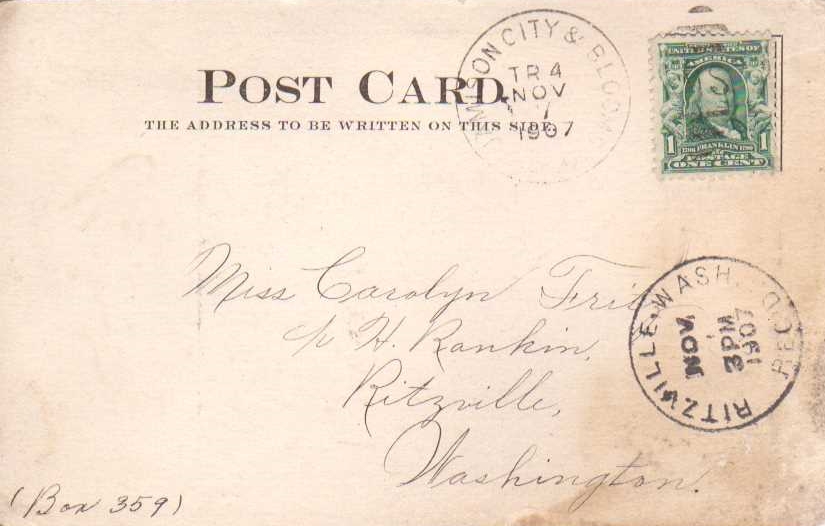 POST CARD
THE ADDRESS TO BE WRITTEN ON THIS SIDE.
CITY & BLOOM
TR 4
NOV
7
1907
UNITED STATES OF
AMERICA
1 1706 FRANKLIN 1790 1
POSTAGE
ONE CENT
Miss Carolyn
c/o H. Rankin,
Ritzville,
Washington.
RITZVILLE, WASH. REC'D.
NOV
3 PM
1907
(Box 359)